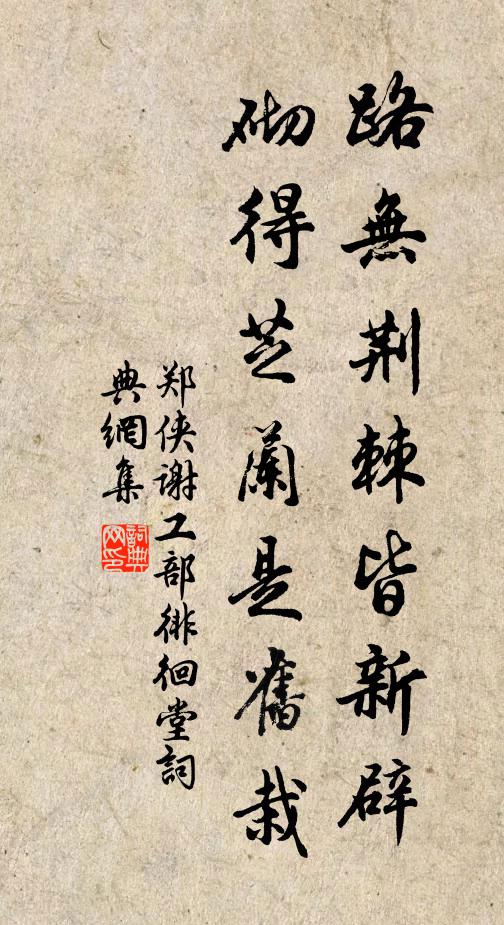 路無荆棘皆新辟
砌得芝蘭是舊栽
郑侠谢工部徘徊堂詞
典網集
詞典网印